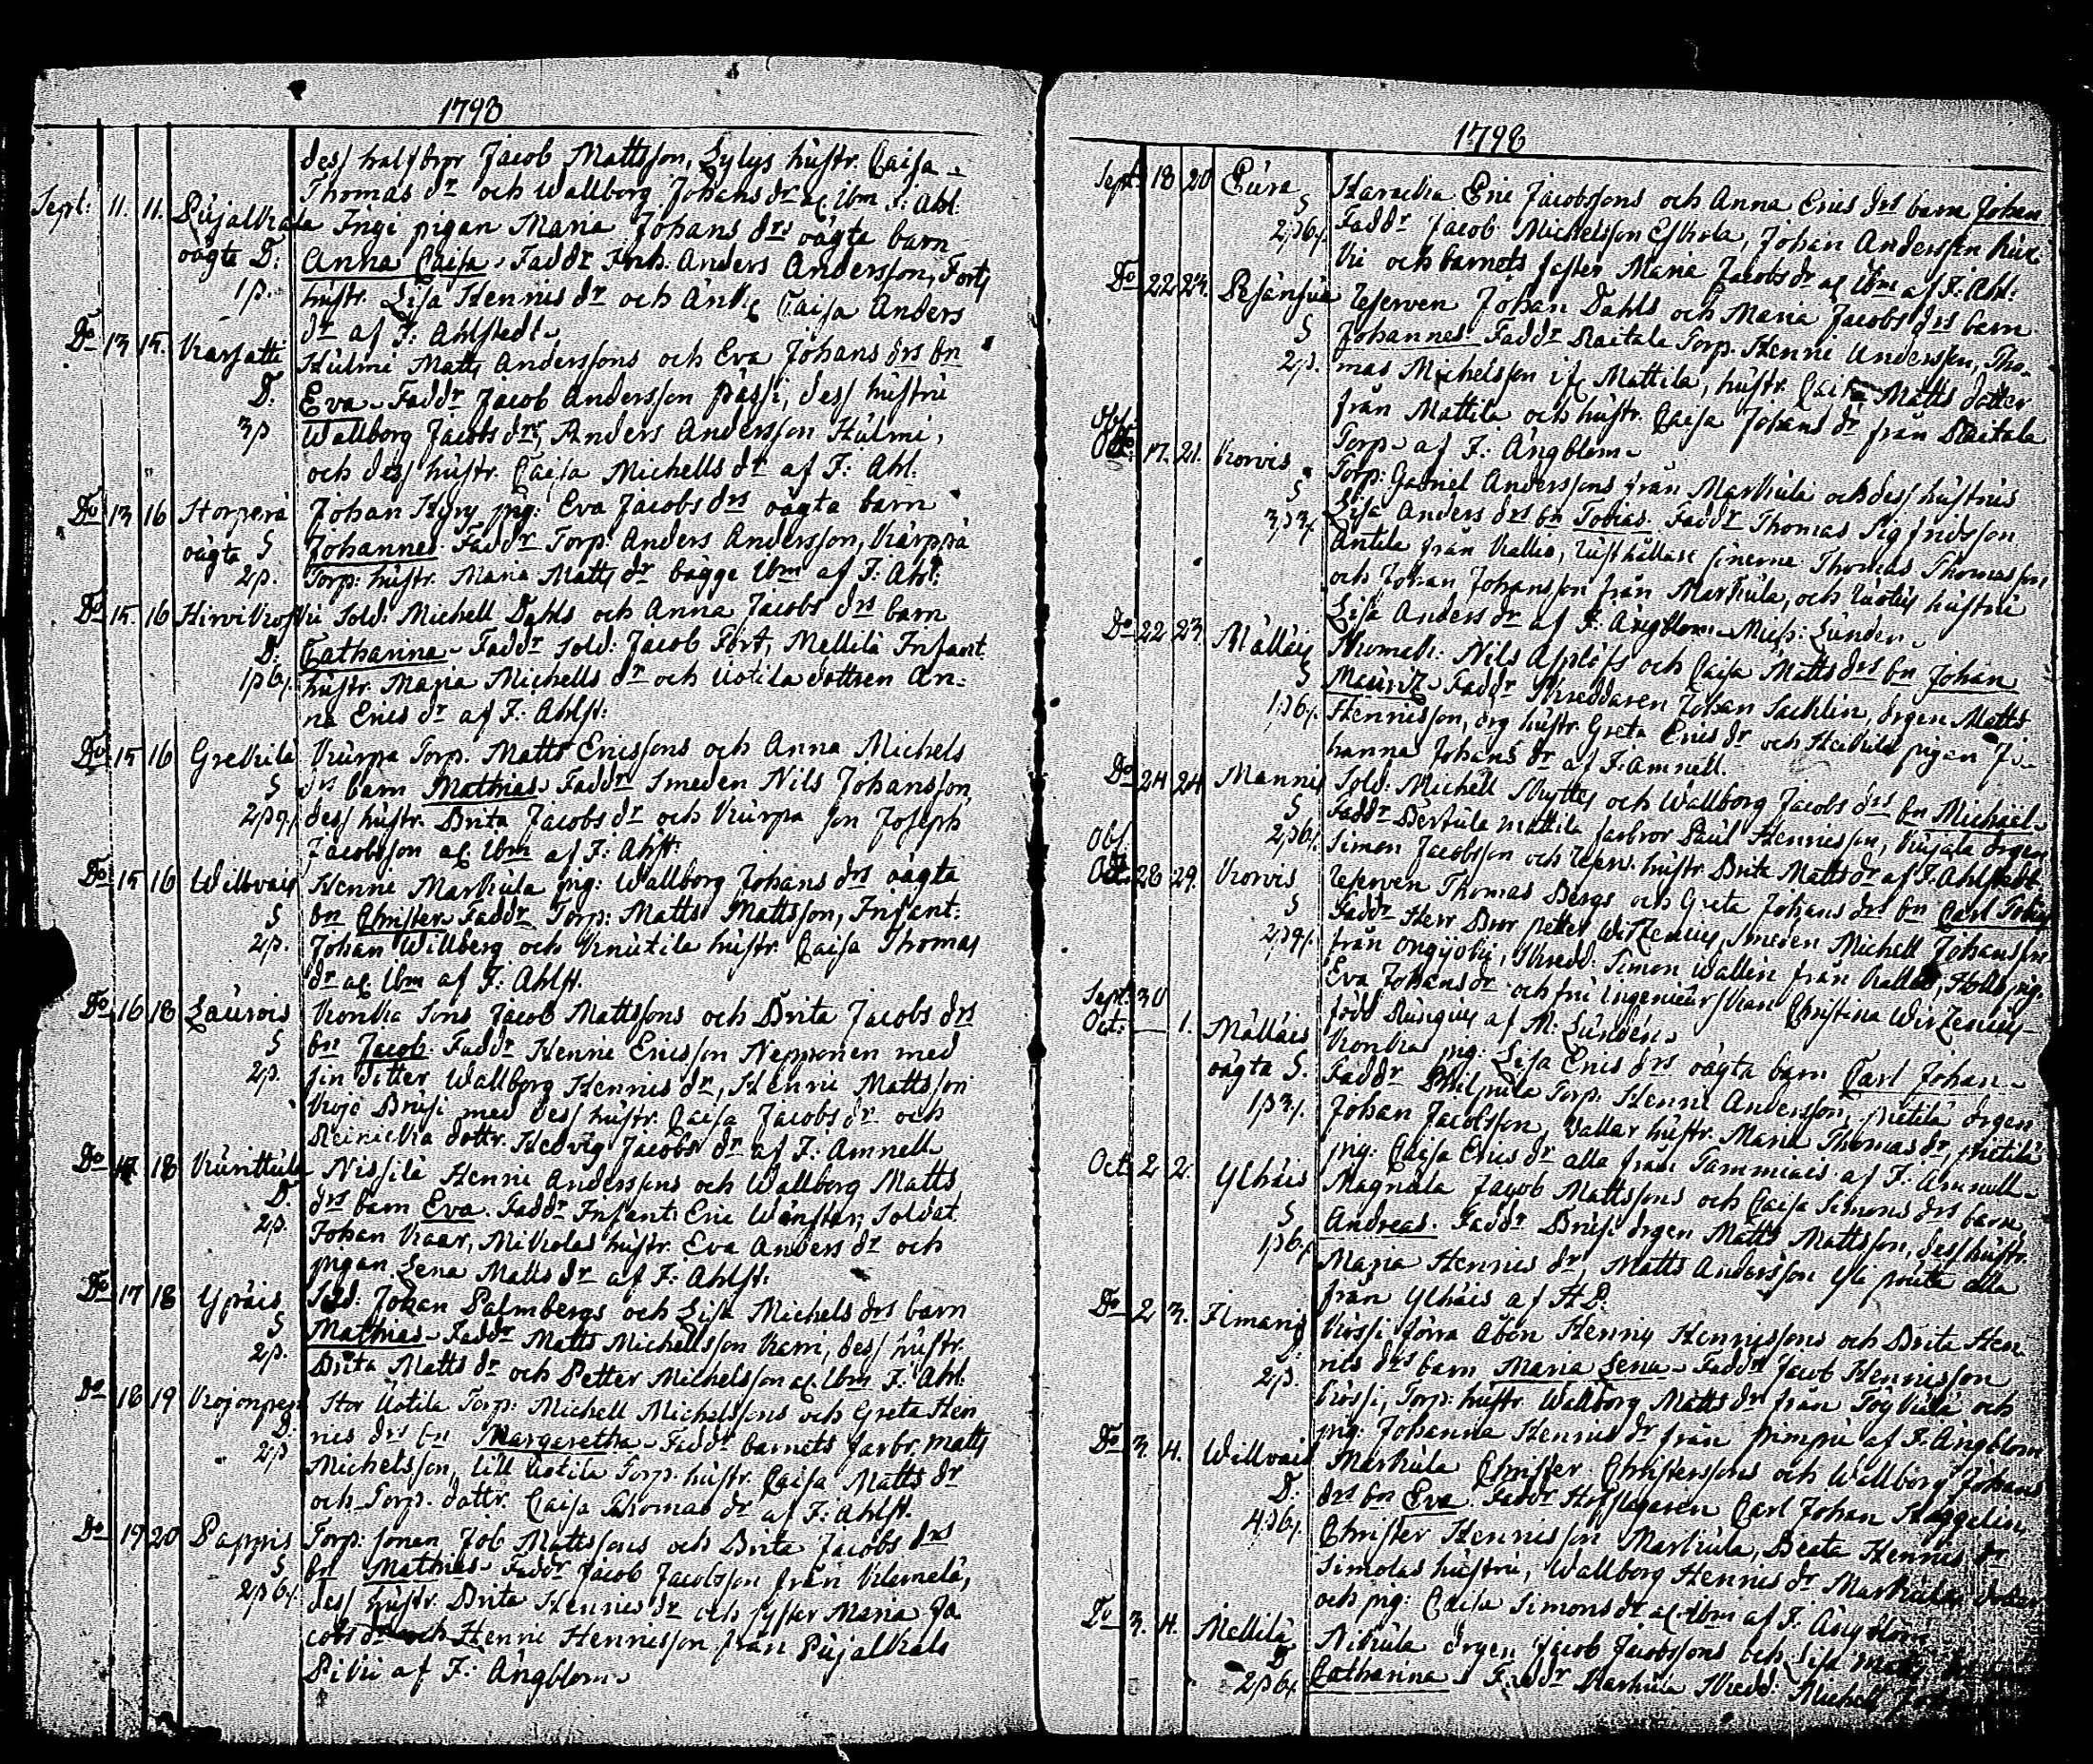 1798
dess halfbror Jacob Mattsson, Lylys hustr. Caisa
Thomas dr och Wallborg Johans dr aꝭ Ibm F: Ahl.
Sept: 11. 11. Pujalkala Ingi pigan Maria Johans drs oägta barn
oägta D. Anna Caisa. Faddr Inh. Anders Andersson, Forts
1 p. hustr. Lisa Hennis dr och Änk. Caisa Anders
dr af F: Ahlstedt.
Do 13 15. Karsatti Hulmi Matts Anderssons och Eva Johans drs bn
D. Eva. Faddr Jacob Andersson Passi, dess hustru
3 p Wallborg Jacobs dr, Anders Andersson Hulmi,
och dess hustr. Caisa Michells dr af F: Ahl.
Do 13 16 Storperä Johan Hyry pig: Eva Jacobs drs oägta barn
oägte S Johannes. Faddr Torp. Anders Andersson, Kärppä
2 p. Torp: hustr. Maria Matts dr bägge Ibm af F: Ahl:
Do 15. 16 Hirvikoski Sold: Michell Dahls och Anna Jacobs drs barn
D. Catharina. Faddr Sold: Jacob Fort, Mellilä Infant.
1 p 6 hustr. Maria Michells dr och Uotila dottren An-
na Erics dr af F: Ahlst:
Do 15 16 Grekilä Kurpa Torp. Matts Ericssons och Anna Michels
S drs barn Mathias. Faddr Smeden Nils Johansson,
2 p 9 dess hustr. Brita Jacobs dr och Kurpa son Joseph
Jacobsson aꝭ Ibm af F: Ahlst:
Do 15 16 Willvais Henric Markula pig: Wallborg Johans drs oägta
S bn Christer. Faddr Torp: Matts Mattsson, Infant:
2 p. Johan Willberg och Knutila hustr. Caisa Thomas
dr aꝭ Ibm af F: Ahlst.
Do 16 18 Laurois Konkka Sons Jacob Mattssons och Brita Jacobs drs
S bn Jacob. Faddr Henric Ericsson Nepponen med
2 p. sin dotter Wallborg Hennis dr, Henric Mattsson
Kojo Brusi med dess hustr. Caisa Jacobs dr och
Reinicka dottr. Hedvig Jacobs dr af F: Amnell
Do 17 18 Kurittula Nissilä Henric Anderssons och Wallborg Matts
D. drs barn Eva. Faddr Infant: Eric Wänster, Soldat
2 p. Johan Kaar, Mikolas hustr. Eva Anders dr och
pigan Lena Matts dr af F: Ahlst:
Do 17 18 Ypäis Sold: Johan Palmbergs och Lisa Michels drs barn
S Mathias. Faddr Matts Michellsson Kani, dess hustr.
2 p. Brita Matts dr och Petter Michelsson aꝭ Ibm F: Ahl.
Do 18 19 Kojonpere Stor Uotila Torp: Michell Michelssons och Greta Hen
D. nis drs bn Margaretha. Faddr barnets farbr. Matts
2 p Michelsson, Lill Uotila Torp. hustr. Caisa Matts dr
och Torp. dottr. Caisa Thomas dr af F: Ahlst.
Do 19 20 Pappis Torp: sonen Job Mattssons och Brita Jacobs drs
S bn Mathias. Faddr Jacob Jacobsson från Kilamelä,
2 p 6 dess hustr. Brita Hennis dr och syster Maria Ja
cobs dr och Henric Hennisson från Pujalkala
Pikii af F: Ängblom.
1798
Sept. 18 20 Eura Haracka Eric Jacobssons och Anna Erics drs barn Johan
S Faddr Jacob Michelsson Eskola, Johan Andersson Kuri
2 p 6 Kii och barnets faster Maria Jacobs dr aꝭ Ibm af F: Ahl:
Do 22 23. Pesänsuu Reserven Johan Dahls och Maria Jacobs drs barn
S Johannes. Faddr Raitala Torp. Henric Andersson, Tho-
2 p. mas Michelsson Mattila, hustr. Caisa Matts dotter
från Mattila och hustr. Caisa Johans dr från Raitala
Torp. af F: Ängblom.
Obs.
Oct. 17. 21. Korvis Torp: Gabriel Anderssons från Markula och dess hustrus
S Lisa Anders drs bn Tobias. Faddr Thomas Sigfridsson
3 p 3 Antila från Kallio, rusthållare sönerne Thomas Thomasson
och Johan Johansson från Markula, och hustru
Lisa Anders dr af F: Ängblom. Miss: Lunden.
Do 22 23. Mälläis Nils Asplöfs och Caisa Matts drs bn Johan
S Mauritz. Faddr Skreddaren Johan Sachlin, drgen Matts
1 p 6 Hennisson, drg hustr. Greta Erics dr och pigan Jo-
hanna Johans dr af F: Amnell.
Do 24 24 Mannis Sold: Michell Skyttes och Wallborg Jacobs drs bn Michael.
S Faddr Mattila farbror Paul Hennisson, Kujala drgen
2 p 6 Simon Jacobsson och Reserv. hustr. Brita Matts dr af F: Ahlstedt
Obs.
Oct. 28 29. Korvis Reserven Thomas Bergs och Greta Johans drs bn Carl Tobias
S Faddr Herr Bror Petter Wirzenius, Smeden Michell Johansson
2 p 9 från Ongijoki, Skredd: Simon Wallin från Kallio, pig:
Eva Johans dr och fru Ingenieurskan Christina Wirzenius
född Rungius af M. Lunden.
Sept: 30
Oct: — 1. Mälläis Konkka pig: Lisa Erics drs oägta barn Carl Johan.
oägta S. Faddr Philpula Torp. Henric Andersson, Pietilä drgen
1 p 3 Johan Jacobsson, Vallar hustr. Maria Thomas dr, Pietilä
pig: Caisa Erics dr alla från Tammiais af F: Amnell.
Oct. 2 2. Ylhäis Magnula Jacob Mattssons och Caisa Simons drs barn
S Andreas. Faddr Brusi drgen Matts Mattsson, dess hustr.
1 p 6 Maria Hennis dr, Matts Andersson Yli alla
från Ylhäis af H D.
Do 2 3. Ilmaris Kossi förra Åbon Henrics Hennissons och Brita Hen
D. nis drs barn Maria Lena. Faddr Jacob Hennisson
2 p. Kossi, Torp: hustr. Wallborg Matts dr från och
pig: Johanna Hennis dr från Pimpu af F: Ängblom
Do 3. 4. Willvais Markula Christer Christerssons och Wallborg Johans
D. drs bn Eva. Faddr Hofslagaren Carl Johan Häggelin,
4 p 6 Christer Hennisson Markula, Beata Hennis dr
Simolas hustru, Wallborg Hennis dr Markulas dotter
och pig: Caisa Simons dr aꝭ Ibm af F: Ängblom
Do 3. 4. Mellilä Nikula drgen Jacob Jacobssons och Lisa Matts
D Catharina. Faddr Markula Skredd: Michell
2 p 6